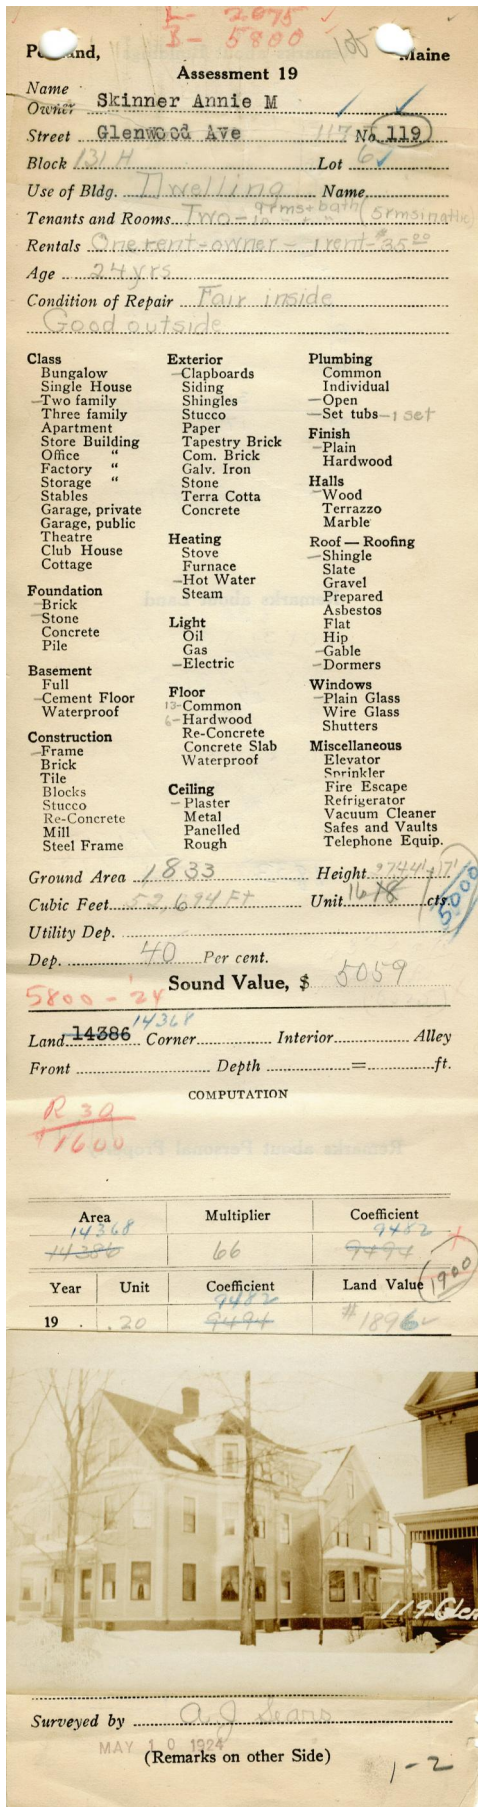 L - 2675
B - 5800
Portland, Maine
Assessment 19
Name
Owner Skinner Annie M
Street Glenwood Ave 117 No. 119
Block 131 H Lot 6
Use of Bldg. Dwelling Name
Tenants and Rooms Two - 9 rms + bath (5 rms in attic)
Rentals One rent - owner - 1 rent - $35.00
Age 24 yrs
Condition of Repair Fair inside
Good outside
Class
Bungalow
Single House
—Two family
Three family
Apartment
Store Building
Office "
Factory "
Storage "
Stables
Garage, private
Garage, public
Theatre
Club House
Cottage
Foundation
—Brick
—Stone
Concrete
Pile
Basement
Full
—Cement Floor
Waterproof
Construction
—Frame
Brick
Tile
Blocks
Stucco
Re-Concrete
Mill
Steel Frame
Exterior
—Clapboards
Siding
Shingles
Stucco
Paper
Tapestry Brick
Com. Brick
Galv. Iron
Stone
Terra Cotta
Concrete
Heating
Stove
Furnace
—Hot Water
Steam
Light
Oil
Gas
—Electric
Floor
13-Common
6-Hardwood
Re-Concrete
Concrete Slab
Waterproof
Ceiling
— Plaster
Metal
Panelled
Rough
Plumbing
Common
Individual
—Open
—Set tubs - 1 set
Finish
—Plain
Hardwood
Halls
—Wood
Terrazzo
Marble
Roof — Roofing
—Shingle
Slate
Gravel
Prepared
Asbestos
Flat
Hip
—Gable
—Dormers
Windows
—Plain Glass
Wire Glass
Shutters
Miscellaneous
Elevator
Sprinkler
Fire Escape
Refrigerator
Vacuum Cleaner
Safes and Vaults
Telephone Equip.
Ground Area 1833 Height
Cubic Feet 52,694 Ft Unit 16 cts.
5000
Utility Dep.
Dep. 40 Per cent.
Sound Value, $ 5059
5800 - '24
14368
Land 14386 Corner Interior Alley
Front Depth = ft.
COMPUTATION
R 30
$1600
Area Multiplier Coefficient
14368 9482
14386 66 9494
1900
Year Unit Coefficient Land Value
9482
19 .20 9494 $1896
119 Glen
Surveyed by A J Sears
MAY 10 1924
(Remarks on other Side)
1-2